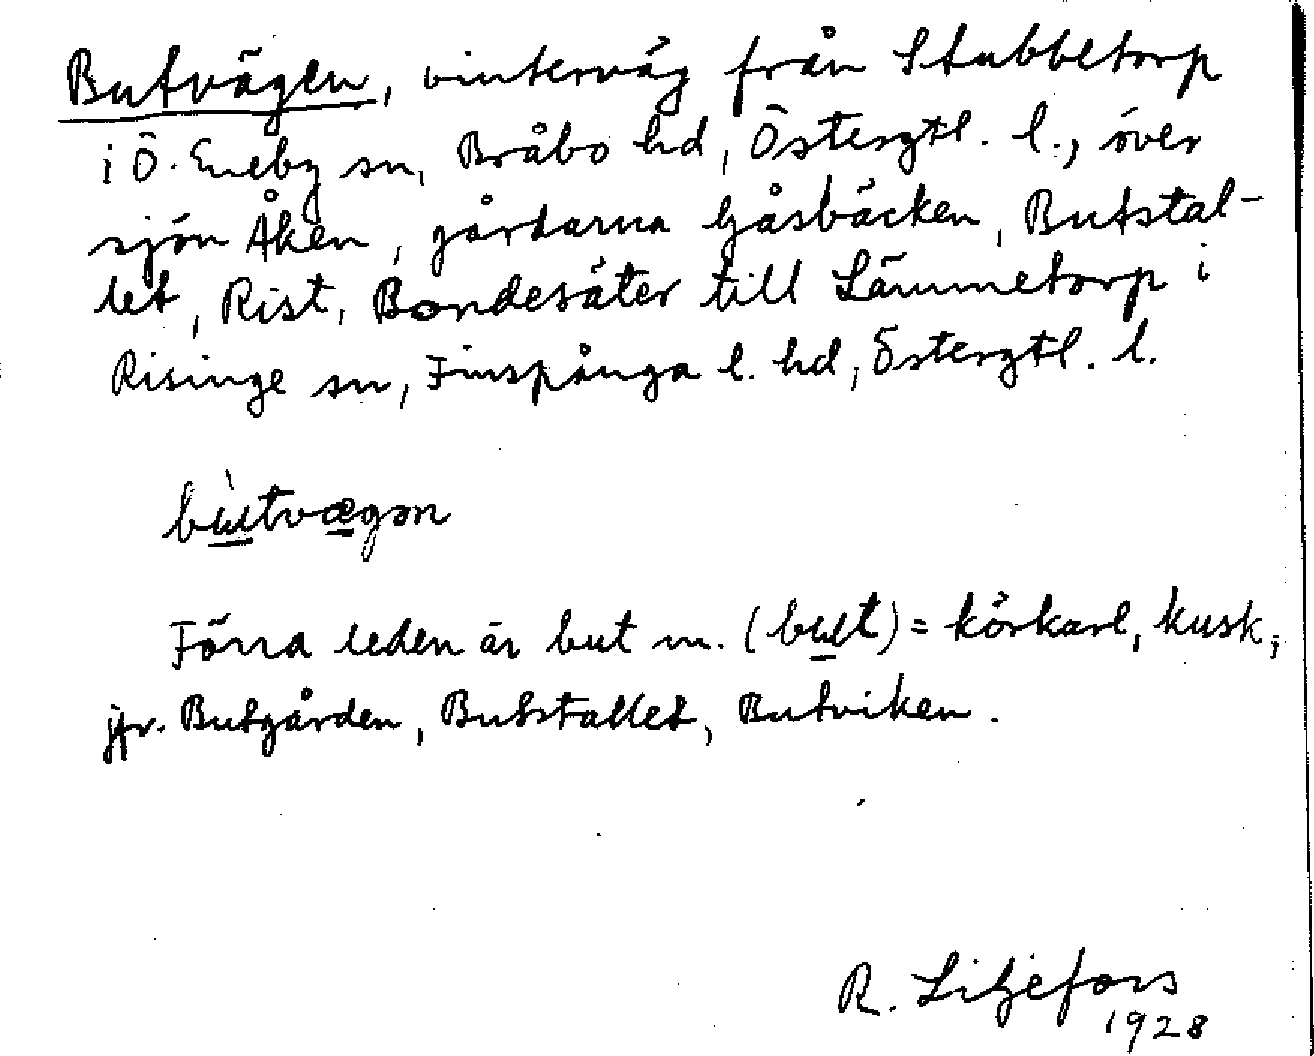 Butvägen, vinterväg från Stubbetorp
i Ö. Eneby sn, Bråbo hd, Östergtl. l., över
sjön Åken, gårdarna Gåsbäcken, Butstal-
let, Rist, Bondesäter till Lämmetorp i
Risinge sn, Finspånga l. hd, Östergtl. l.
bùtvægən
Förra leden är but m. (but) = körkarl, kusk;
jfr. Butgården, Butstallet, Butviken.
R. Liljefors
1928